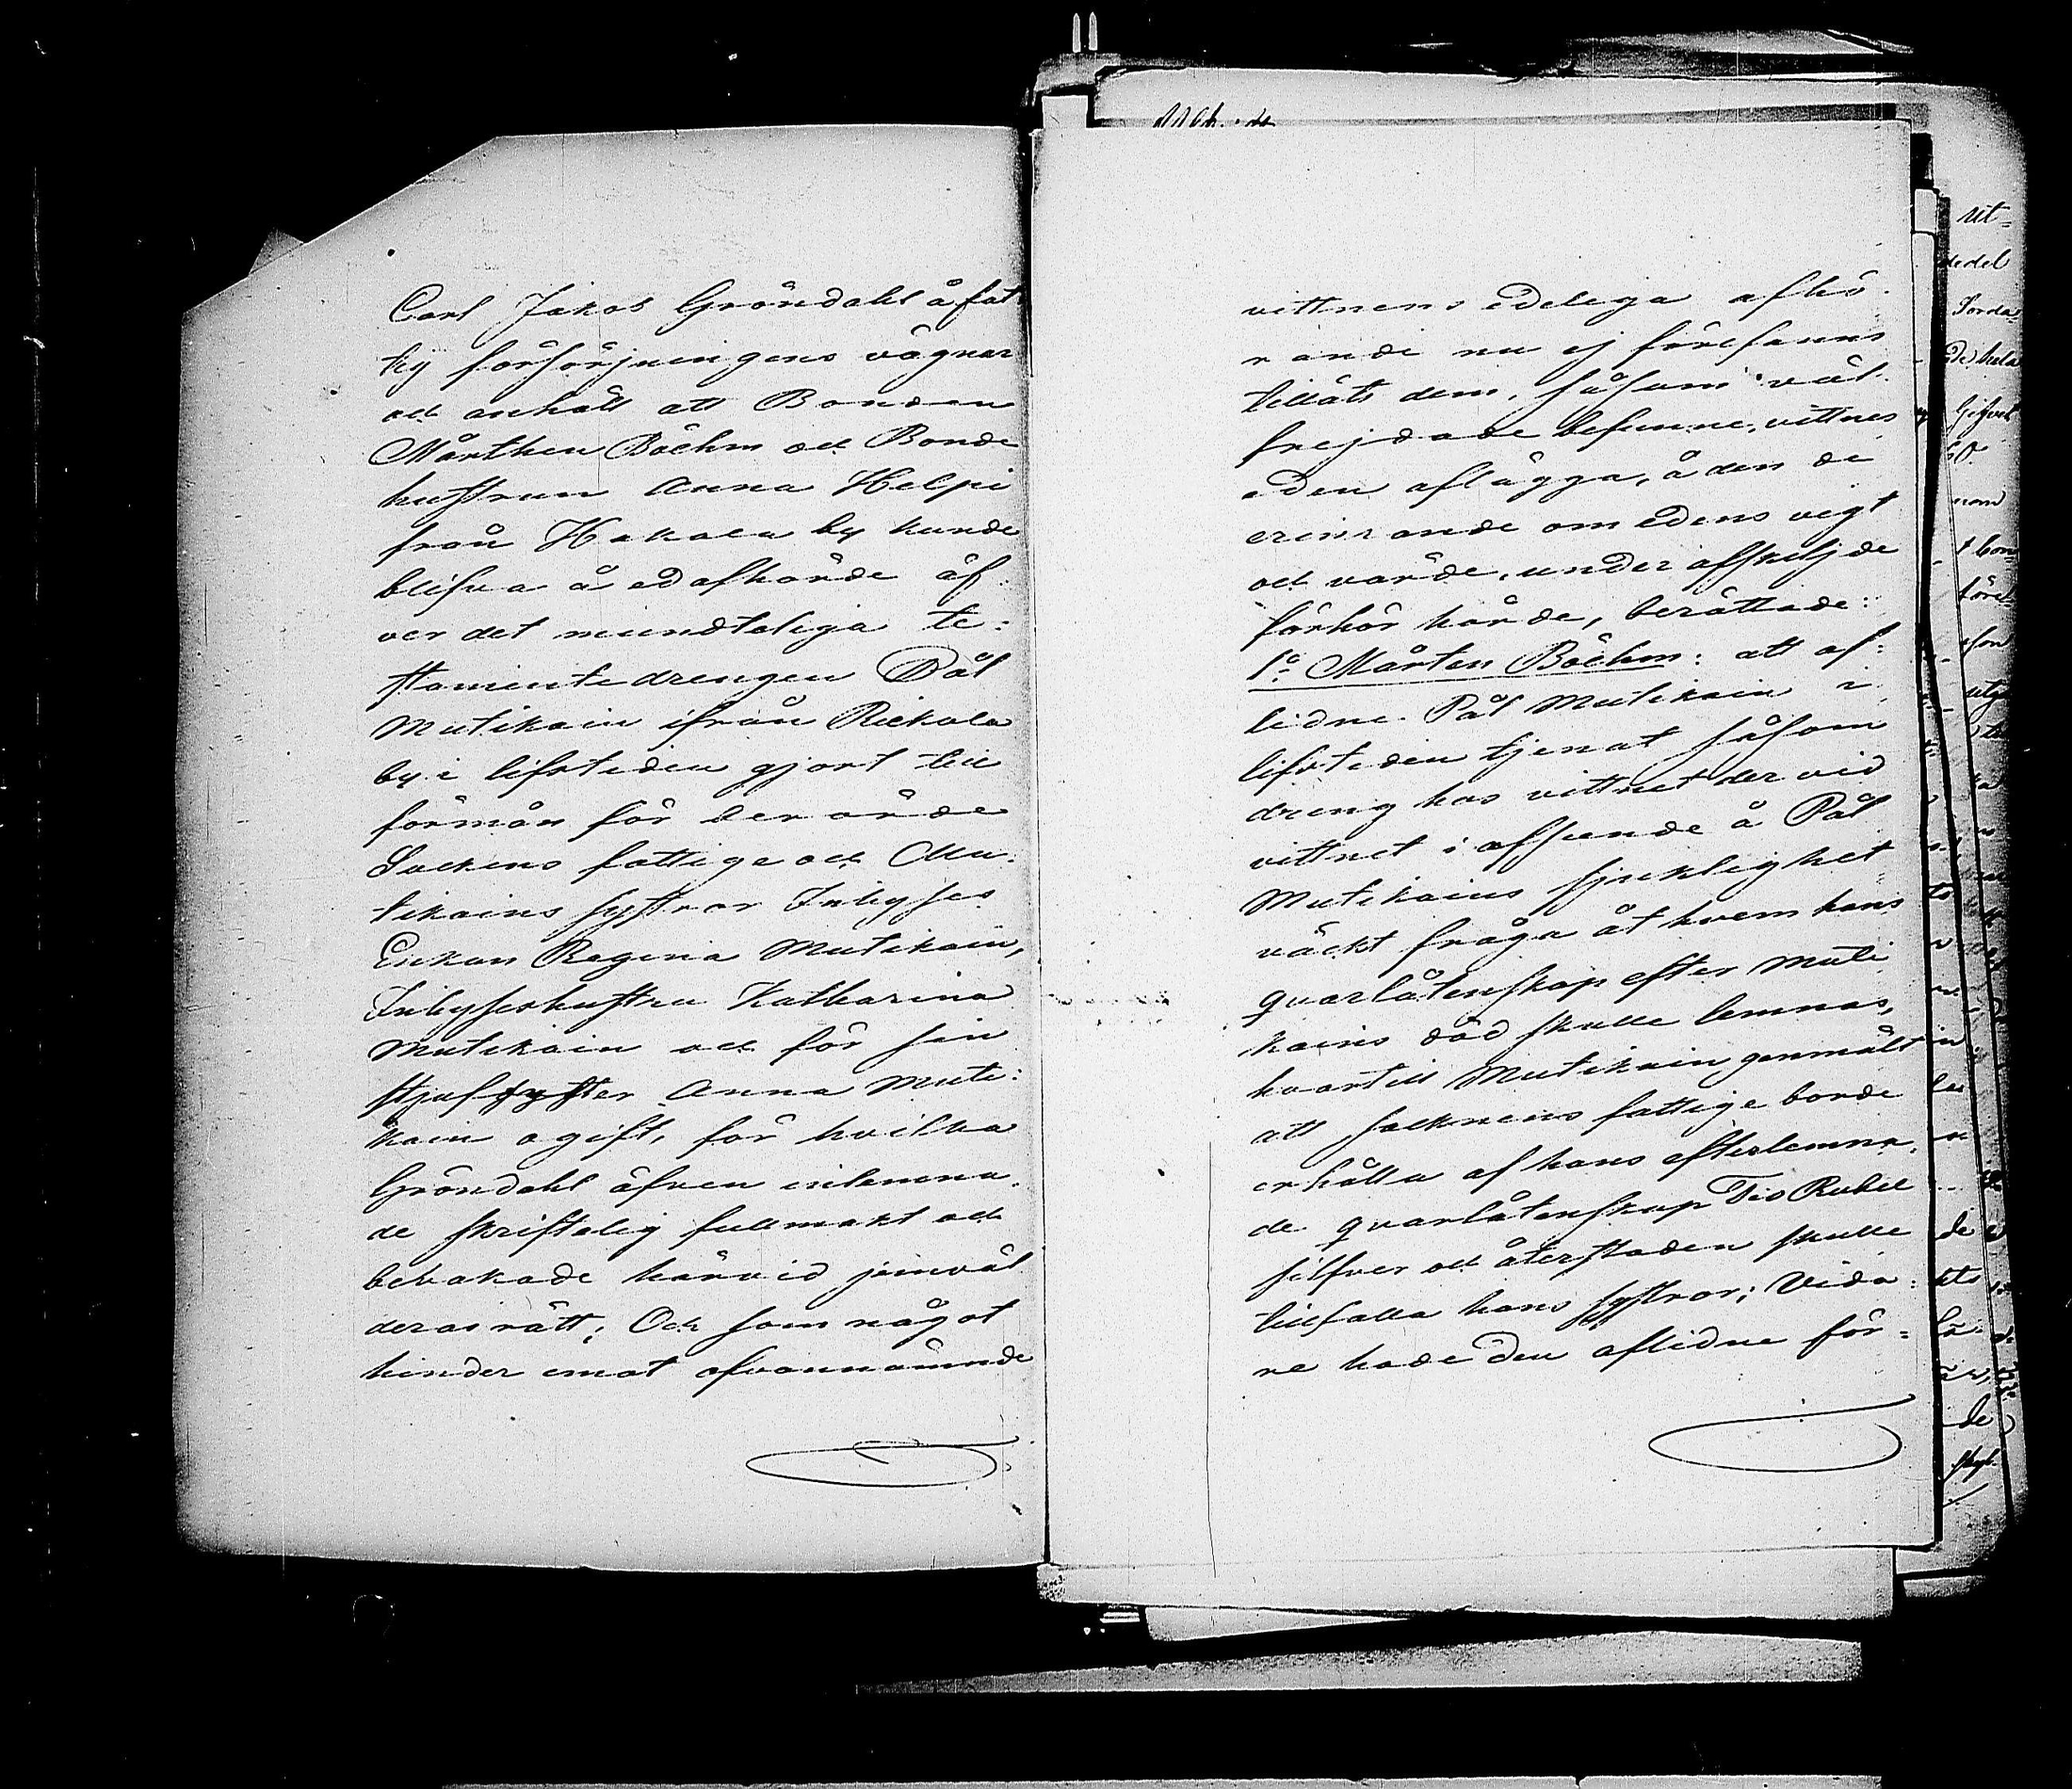 Carl Jakob Gröndahl å fat
tig försörjningens vägnar
och anhöll att Bonden
Mårthen Böehm och Bonde
hustrun Anna Helpi
från Hakala by kunde
blifva å ed afhörde öf:
ver det mundteliga te:
stamente drengen Pål
Mutikain ifrån Riekala
by i lifstiden gjort till
förmån för berörde
Sockens fattige och Mu:
tikains systrar Inhyses
Enkan Regina Mutikain,
Inhyseshustru Katharina
Mutikain och för sin
stjufsyster Anna Muti:
kain ogift, för hvilka
Gröndahl äfven inlemna:
de skriftelig fullmakt och
bevakade härvid jemväl
deras rätt; Och som något
hinder emot ofvannämnde
vittnens edeliga afhö:
rande nu ej förefanns
tilläts dem, såsom väl:
frejdade befunne, vittnes
eden aflägga, å den de
erinrande om edens vigt
och värde, under afskiljde
förhör hörde, berättade:
1o Mårten Böehm: att af:
lidne Pål Mutikain i
lifstiden tjenat såsom
dreng hos vittnet der vid
vittnet i afseende å Pål
Mutikains sjuklighet
väckt fråga åt hvem hans
qvarlåtenskap efter Muti
kains död skulle lemnas,
hvartill Mutikain genmält
att socknens fattige borde
erhålla af hans efterlemna:
de qvarlåtenskap Tio Rubel
silfver och återstoden skulle
tillfalla hans systrar; Vida:
re hade den aflidne för=